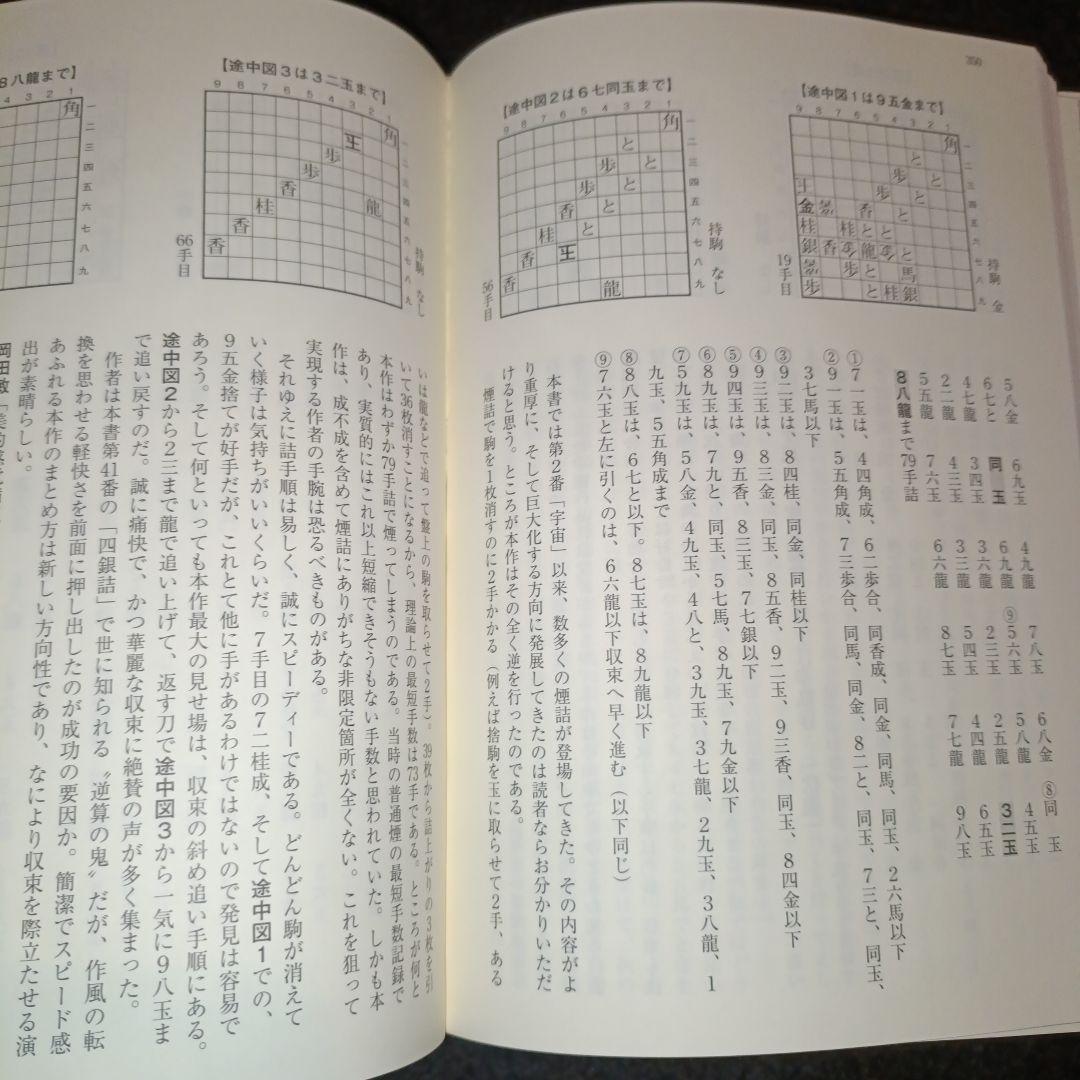 350
【途中図1は9五金まで】
持駒 金
19手目
【途中図2は6七同玉まで】
持駒 なし
56手目
5八金
6九玉
4九龍
7八玉
6八金
⑧同 玉
6七と
同 玉
6九龍
⑨5六玉
5八龍
4五玉
4七龍
3四玉
3六龍
2三玉
2五龍
3二玉
2二龍
4三玉
3三龍
5四玉
4四龍
6五玉
5五龍
7六玉
6六龍
8七玉
7七龍
9八玉
8八龍まで79手詰
①7一玉は、4四角成、6二歩合、同香成、同金、同馬、同玉、2六馬以下
②9一玉は、5五角成、7三歩合、同馬、同金、8二と、同玉、7三と、同玉、
3七馬以下
③9二玉は、8四桂、同金、同桂以下
④9三玉は、8三金、同玉、8五香、9二玉、9三香、同玉、8四金以下
⑤9四玉は、9五香、8三玉、7七銀以下
⑥8九玉は、7九と、同玉、5七馬、8九玉、7九金以下
⑦5九玉は、5八金、4九玉、4八と、3九玉、3七龍、2九玉、3八龍、1
九玉、5五角成まで
⑧8八玉は、6七と以下。8七玉は、8九龍以下
⑨7六玉と左に引くのは、6六龍以下収束へ早く進む(以下同じ)
本書では第2番「宇宙」以来、数多くの煙詰が登場してきた。その内容がよ
り重厚に、そして巨大化する方向に発展してきたのは読者ならお分かりいただ
けると思う。ところが本作はその全く逆を行ったのである。
煙詰で駒を1枚消すのに2手かかる(例えば捨駒を玉に取らせて2手、ある
【途中図3は3二玉まで】
持駒 なし
66手目
8八龍まで】
いは龍などで追って盤上の駒を取らせて2手)。39枚から詰上がりの3枚を引
いて36枚消すことになるから、理論上の最短手数は73手である。ところが何と
本作はわずか79手詰で煙ってしまうのである。当時の普通煙の最短手数記録で
あり、実質的にはこれ以上短縮できそうもない手数と思われていた。しかも本
作は、成不成を含めて煙詰にありがちな非限定箇所が全くない。これを狙って
実現する作者の手腕は恐るべきものがある。
それゆえに詰手順は易しく、誠にスピーディーである。どんどん駒が消えて
いく様子は気持ちがいいくらいだ。7手目の7二桂成、そして途中図1での、
9五金捨てが好手だが、これとて他に手があるわけではないので発見は容易で
あろう。そして何といっても本作最大の見せ場は、収束の斜め追い手順にある。
途中図2から2三まで龍で追い上げて、返す刀で途中図3から一気に9八玉ま
で追い戻すのだ。誠に痛快で、かつ華麗な収束に絶賛の声が多く集まった。
作者は本書第41番の「四銀詰」で世に知られる〝逆算の鬼〟だが、作風の転
換を思わせる軽快さを前面に押し出したのが成功の要因か。簡潔でスピード感
あふれる本作のまとめ方は新しい方向性であり、なにより収束を際立たせる演
出が素晴らしい。